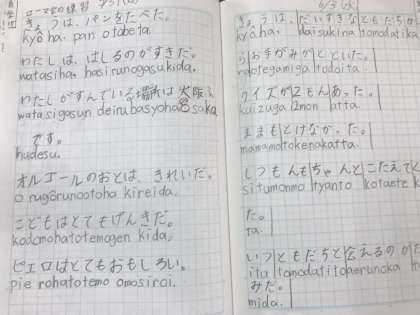 ローマ字の練習
きょうは、パンをたべた。
kyôha. pan otabeta.
わたしは、はしるのがすきだ。
watasiha. hasirunogasukida.
わたしがすんでいる場所は大阪
watasigasun deiru basyoha
です。
hudesu.
オルゴールのおとは、きれいだ。
o rugôrunootoha kireida.
こどもはとてもげんきだ。
kodomohatotemogen kida.
ピエロはとてもおもしろい。
pie rohatotemo omosiroi.
きょうは、だいすきなともだちか
kyoha. daisukina tomodatika
らおてがみがとどいた。
rotegamiga todoita.
クイズが2もんあった。
kuizuga 2mon atta.
ままもとけなかった。
mamamotokenakatta.
しつもんもちゃんとこたえてく
situmonmo tyanto kotaete k
た。
ta.
いつともだちと会えるのかた
itu tomodatitoaerunoka
みだ。
mida.